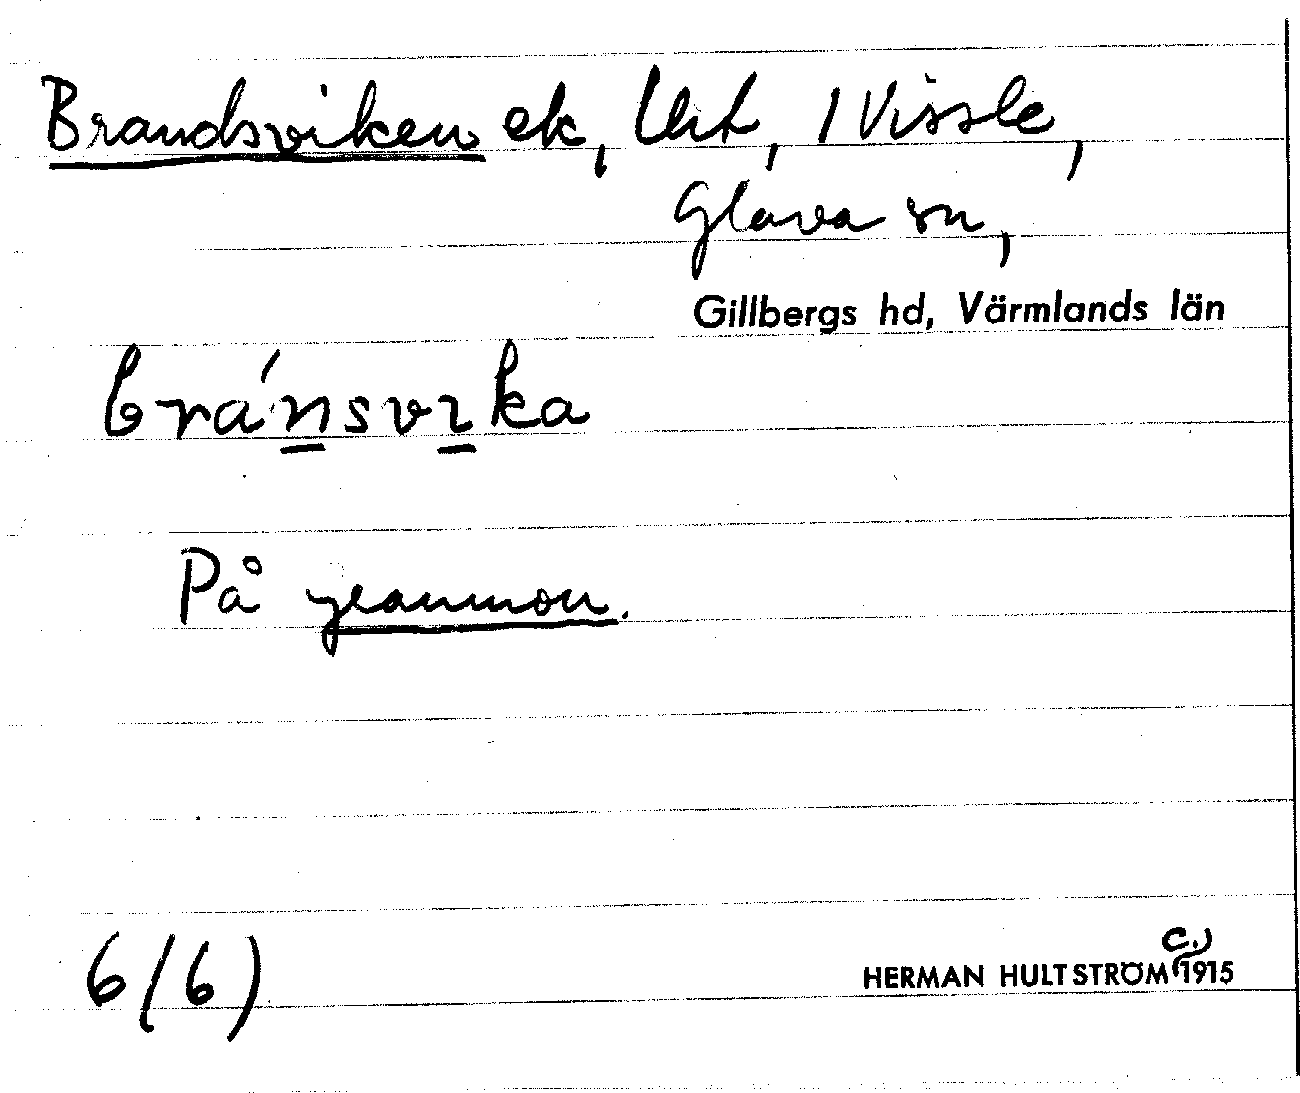 Brandsviken ek, Urt, 1 Vissle,
Glava sn,
Gillbergs hd, Värmlands län
bránsvıka
På
6(6)
c.)
HERMAN HULTSTRÖM 1915